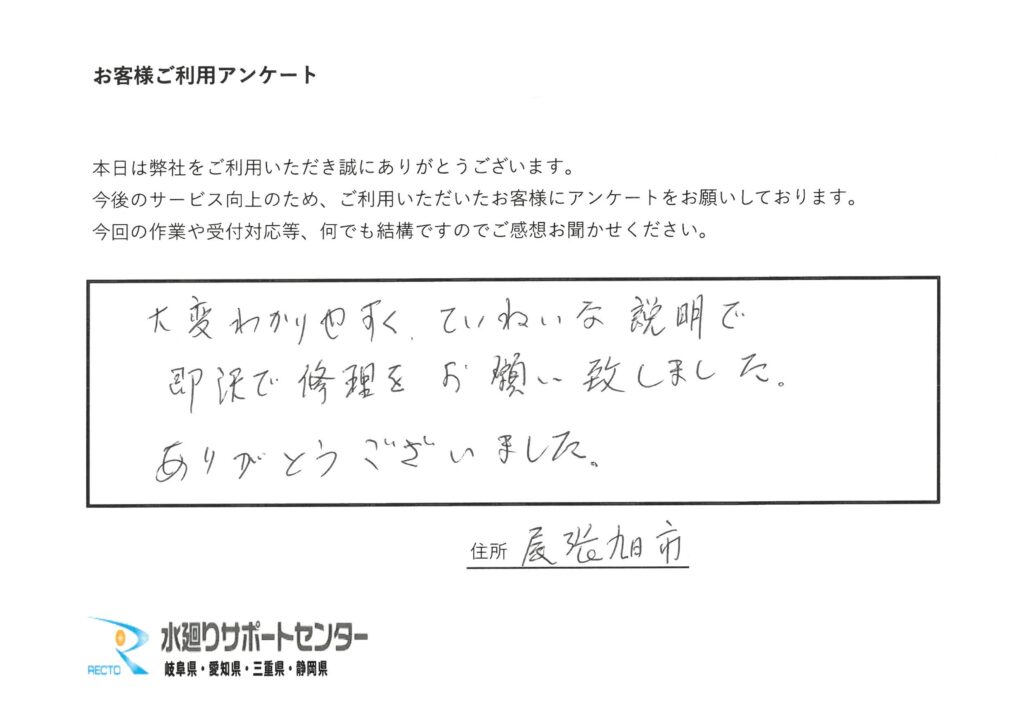 お客様ご利用アンケート
本日は弊社をご利用いただき誠にありがとうございます。
今後のサービス向上のため、ご利用いただいたお客様にアンケートをお願いしております。
今回の作業や受付対応等、何でも結構ですのでご感想お聞かせください。
大変わかりやすく、ていねいな説明で
即決で修理をお願い致しました。
ありがとうございました。
住所 尾張旭市
RECTO 水廻りサポートセンター
岐阜県・愛知県・三重県・静岡県